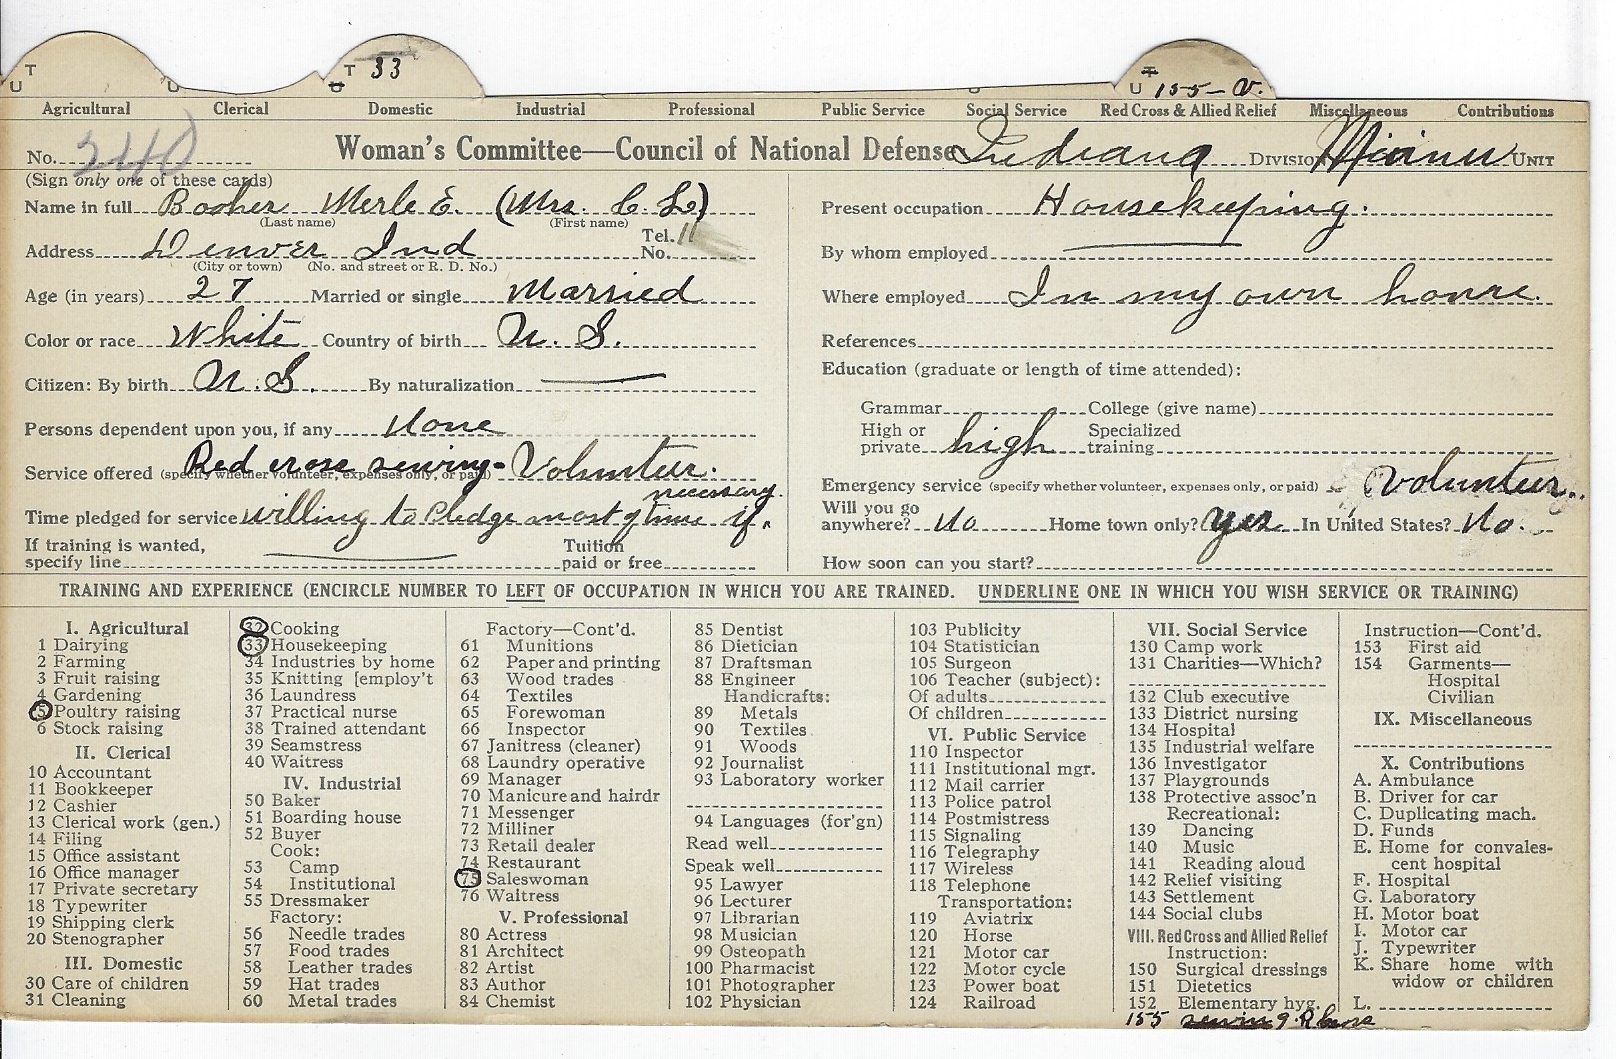 T U U T U 33 U T U 155 - V.
Agricultural Clerical Domestic Industrial Professional Public Service Social Service Red Cross & Allied Relief Miscellaneous Contributions
No. 240 Woman's Committee—Council of National Defense Indiana DIVISION UNIT
(Sign only one of these cards)
Name in full Booher Merle E. (Mrs. C. L.)
(Last name) (First name)
Address Denver Ind Tel. No. 11
(City or town) (No. and street or R. D. No.)
Age (in years) 27 Married or single Married
Color or race White Country of birth U. S.
Citizen: By birth U. S. By naturalization
Persons dependent upon you, if any None
Service offered (specify whether volunteer, expenses only, or paid) Red cross sewing - Volunteer.
Time pledged for service willing to pledge most of time if necessary.
If training is wanted, specify line Tuition paid or free
Present occupation Housekeeping.
By whom employed
Where employed In my own home.
References
Education (graduate or length of time attended):
Grammar College (give name)
High or private high Specialized training
Emergency service (specify whether volunteer, expenses only, or paid) Volunteer.
Will you go anywhere? No Home town only? Yes In United States? No.
How soon can you start?
TRAINING AND EXPERIENCE (ENCIRCLE NUMBER TO LEFT OF OCCUPATION IN WHICH YOU ARE TRAINED. UNDERLINE ONE IN WHICH YOU WISH SERVICE OR TRAINING)
I. Agricultural
1 Dairying
2 Farming
3 Fruit raising
4 Gardening
5 Poultry raising
6 Stock raising
II. Clerical
10 Accountant
11 Bookkeeper
12 Cashier
13 Clerical work (gen.)
14 Filing
15 Office assistant
16 Office manager
17 Private secretary
18 Typewriter
19 Shipping clerk
20 Stenographer
III. Domestic
30 Care of children
31 Cleaning
32 Cooking
33 Housekeeping
34 Industries by home
35 Knitting [employ't
36 Laundress
37 Practical nurse
38 Trained attendant
39 Seamstress
40 Waitress
IV. Industrial
50 Baker
51 Boarding house
52 Buyer
Cook:
53 Camp
54 Institutional
55 Dressmaker
Factory:
56 Needle trades
57 Food trades
58 Leather trades
59 Hat trades
60 Metal trades
Factory—Cont'd.
61 Munitions
62 Paper and printing
63 Wood trades
64 Textiles
65 Forewoman
66 Inspector
67 Janitress (cleaner)
68 Laundry operative
69 Manager
70 Manicure and hairdr
71 Messenger
72 Milliner
73 Retail dealer
74 Restaurant
75 Saleswoman
76 Waitress
V. Professional
80 Actress
81 Architect
82 Artist
83 Author
84 Chemist
85 Dentist
86 Dietician
87 Draftsman
88 Engineer
Handicrafts:
89 Metals
90 Textiles
91 Woods
92 Journalist
93 Laboratory worker
94 Languages (for'gn)
Read well
Speak well
95 Lawyer
96 Lecturer
97 Librarian
98 Musician
99 Osteopath
100 Pharmacist
101 Photographer
102 Physician
103 Publicity
104 Statistician
105 Surgeon
106 Teacher (subject):
Of adults
Of children
VI. Public Service
110 Inspector
111 Institutional mgr.
112 Mail carrier
113 Police patrol
114 Postmistress
115 Signaling
116 Telegraphy
117 Wireless
118 Telephone
Transportation:
119 Aviatrix
120 Horse
121 Motor car
122 Motor cycle
123 Power boat
124 Railroad
VII. Social Service
130 Camp work
131 Charities—Which?
132 Club executive
133 District nursing
134 Hospital
135 Industrial welfare
136 Investigator
137 Playgrounds
138 Protective assoc'n
Recreational:
139 Dancing
140 Music
141 Reading aloud
142 Relief visiting
143 Settlement
144 Social clubs
VIII. Red Cross and Allied Relief
Instruction:
150 Surgical dressings
151 Dietetics
152 Elementary hyg.
155 sewing R Cross
Instruction—Cont'd.
153 First aid
154 Garments—
Hospital
Civilian
IX. Miscellaneous
X. Contributions
A. Ambulance
B. Driver for car
C. Duplicating mach.
D. Funds
E. Home for convales-
cent hospital
F. Hospital
G. Laboratory
H. Motor boat
I. Motor car
J. Typewriter
K. Share home with
widow or children
L.